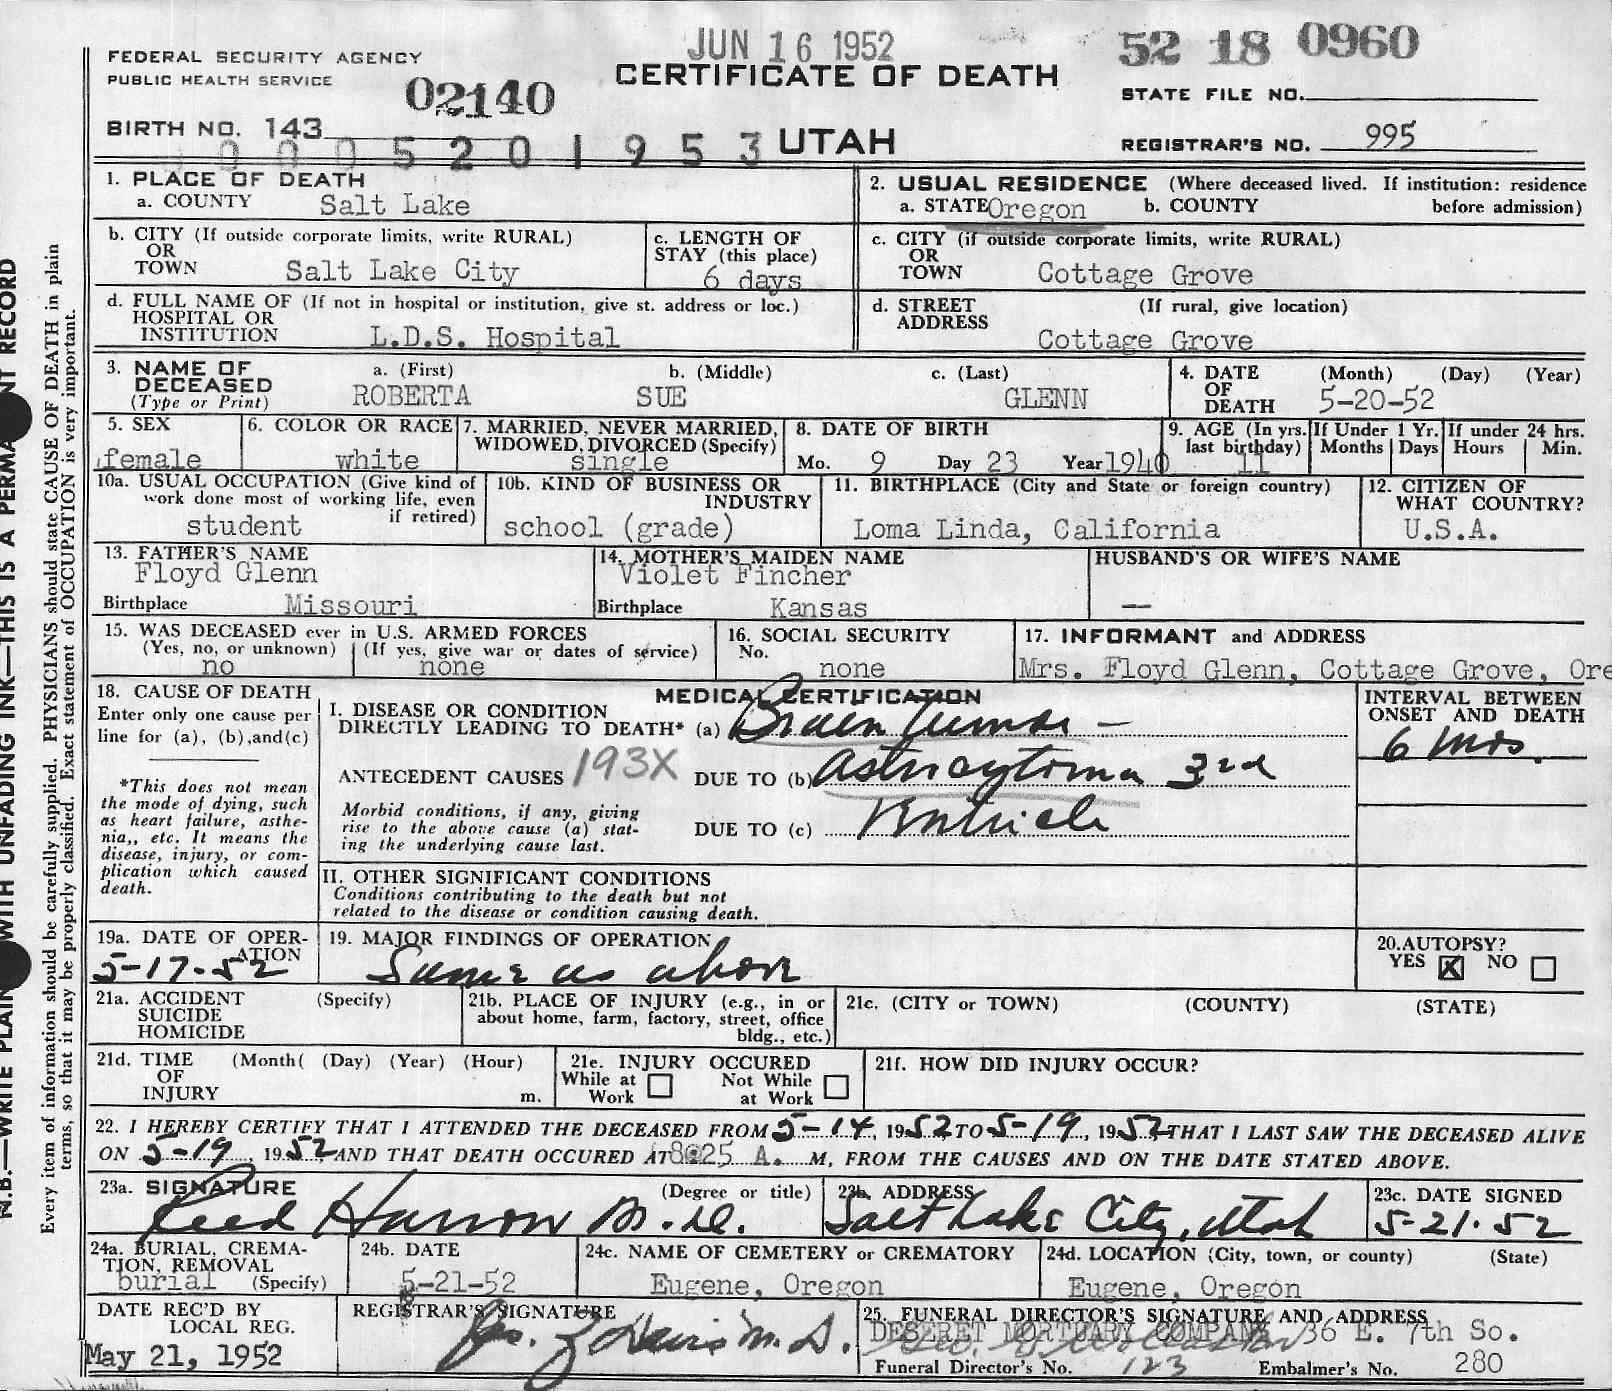 JUN 16 1952
52 18 0960
FEDERAL SECURITY AGENCY
PUBLIC HEALTH SERVICE
02140
CERTIFICATE OF DEATH
STATE FILE NO.
BIRTH NO. 143
0005201953
UTAH
REGISTRAR'S NO. 995
1. PLACE OF DEATH
a. COUNTY Salt Lake
2. USUAL RESIDENCE (Where deceased lived. If institution: residence before admission)
a. STATE Oregon b. COUNTY
b. CITY (If outside corporate limits, write RURAL)
OR
TOWN Salt Lake City
c. LENGTH OF
STAY (this place)
6 days
c. CITY (if outside corporate limits, write RURAL)
OR
TOWN Cottage Grove
d. FULL NAME OF (If not in hospital or institution, give st. address or loc.)
HOSPITAL OR
INSTITUTION L.D.S. Hospital
d. STREET (If rural, give location)
ADDRESS
Cottage Grove
3. NAME OF
DECEASED
(Type or Print)
a. (First) b. (Middle) c. (Last)
ROBERTA SUE GLENN
4. DATE (Month) (Day) (Year)
OF
DEATH 5-20-52
5. SEX
female
6. COLOR OR RACE
white
7. MARRIED, NEVER MARRIED,
WIDOWED, DIVORCED (Specify)
single
8. DATE OF BIRTH
Mo. 9 Day 23 Year 1940
9. AGE (In yrs.
last birthday)
11
If Under 1 Yr.
Months Days
If under 24 hrs.
Hours Min.
10a. USUAL OCCUPATION (Give kind of
work done most of working life, even
if retired)
student
10b. KIND OF BUSINESS OR
INDUSTRY
school (grade)
11. BIRTHPLACE (City and State or foreign country)
Loma Linda, California
12. CITIZEN OF
WHAT COUNTRY?
U.S.A.
13. FATHER'S NAME
Floyd Glenn
Birthplace Missouri
14. MOTHER'S MAIDEN NAME
Violet Fincher
Birthplace Kansas
HUSBAND'S OR WIFE'S NAME
—
15. WAS DECEASED ever in U.S. ARMED FORCES
(Yes, no, or unknown) (If yes, give war or dates of service)
no none
16. SOCIAL SECURITY
No.
none
17. INFORMANT and ADDRESS
Mrs. Floyd Glenn, Cottage Grove, Ore
18. CAUSE OF DEATH
Enter only one cause per
line for (a), (b),and(c)
*This does not mean
the mode of dying, such
as heart failure, asthe-
nia,, etc. It means the
disease, injury, or com-
plication which caused
death.
MEDICAL CERTIFICATION
I. DISEASE OR CONDITION
DIRECTLY LEADING TO DEATH* (a) Brain tumor –
ANTECEDENT CAUSES 193X DUE TO (b) Astrocytoma 3rd
Morbid conditions, if any, giving
rise to the above cause (a) stat-
ing the underlying cause last.
DUE TO (c) Ventricle
II. OTHER SIGNIFICANT CONDITIONS
Conditions contributing to the death but not
related to the disease or condition causing death.
INTERVAL BETWEEN
ONSET AND DEATH
6 mos.
19a. DATE OF OPER-
ATION
5-17-52
19. MAJOR FINDINGS OF OPERATION
Same as above
20.AUTOPSY?
YES X NO
21a. ACCIDENT (Specify)
SUICIDE
HOMICIDE
21b. PLACE OF INJURY (e.g., in or
about home, farm, factory, street, office
bldg., etc.)
21c. (CITY or TOWN) (COUNTY) (STATE)
21d. TIME (Month( (Day) (Year) (Hour)
OF
INJURY m.
21e. INJURY OCCURED
While at Not While
Work at Work
21f. HOW DID INJURY OCCUR?
22. I HEREBY CERTIFY THAT I ATTENDED THE DECEASED FROM 5-14, 1952 TO 5-19, 1952 THAT I LAST SAW THE DECEASED ALIVE
ON 5-19 1952, AND THAT DEATH OCCURED AT 8:25 A. M, FROM THE CAUSES AND ON THE DATE STATED ABOVE.
23a. SIGNATURE (Degree or title)
Reed Harrow M.D.
23b. ADDRESS
Salt Lake City, Utah
23c. DATE SIGNED
5-21-52
24a. BURIAL, CREMA-
TION, REMOVAL
burial (Specify)
24b. DATE
5-21-52
24c. NAME OF CEMETERY or CREMATORY
Eugene, Oregon
24d. LOCATION (City, town, or county) (State)
Eugene, Oregon
DATE REC'D BY
LOCAL REG.
May 21, 1952
REGISTRAR'S SIGNATURE
M.D.
25. FUNERAL DIRECTOR'S SIGNATURE AND ADDRESS
DESERET MORTUARY COMPANY 36 E. 7th So.
Funeral Director's No. 123 Embalmer's No. 280
N.B.—WRITE PLAIN WITH UNFADING INK—THIS IS A PERMA NT RECORD
Every item of information should be carefully supplied. PHYSICIANS should state CAUSE OF DEATH in plain
terms, so that it may be properly classified. Exact statement of OCCUPATION is very important.